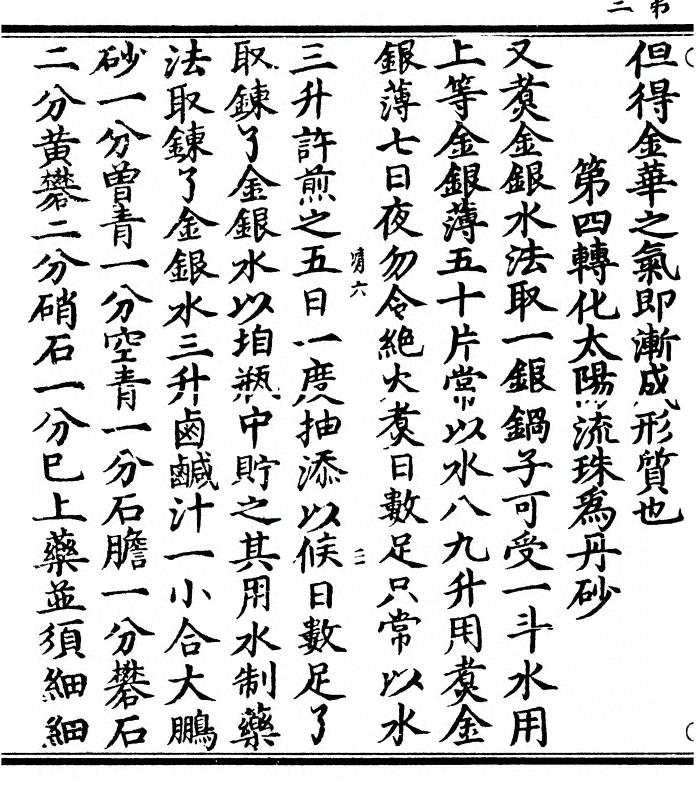 但得金華之氣即漸成形質也
第四轉化太陽流珠為丹砂
又煑金銀水法取一銀鍋子可受一斗水用
上等金銀薄五十片常以水八九升用煑金
銀薄七日夜勿令絕火煑日數足只常以水
清六
三
三升許煎之五日一度抽添以候日數足了
取鍊了金銀水以垍瓶中貯之其用水制藥
法取鍊了金銀水三升鹵鹹汁一小合大鵬
砂一分曾青一分空青一分石膽一分礬石
二分黃礬二分硝石一分巳上藥並須細細